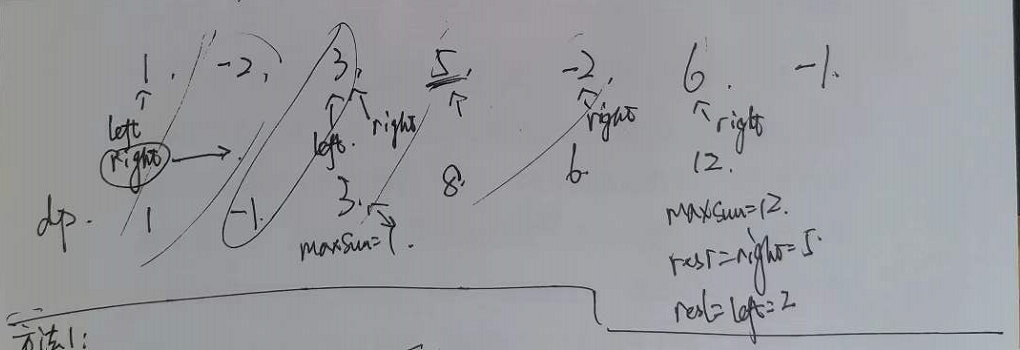 1, -2, 3, 5, -2, 6, -1.
left left. right right right
right
dp. 1 -1. 3. 8. 6. 12.
maxsum=1. maxsum=12.
resr=right=5
resl=left=2
方法1: